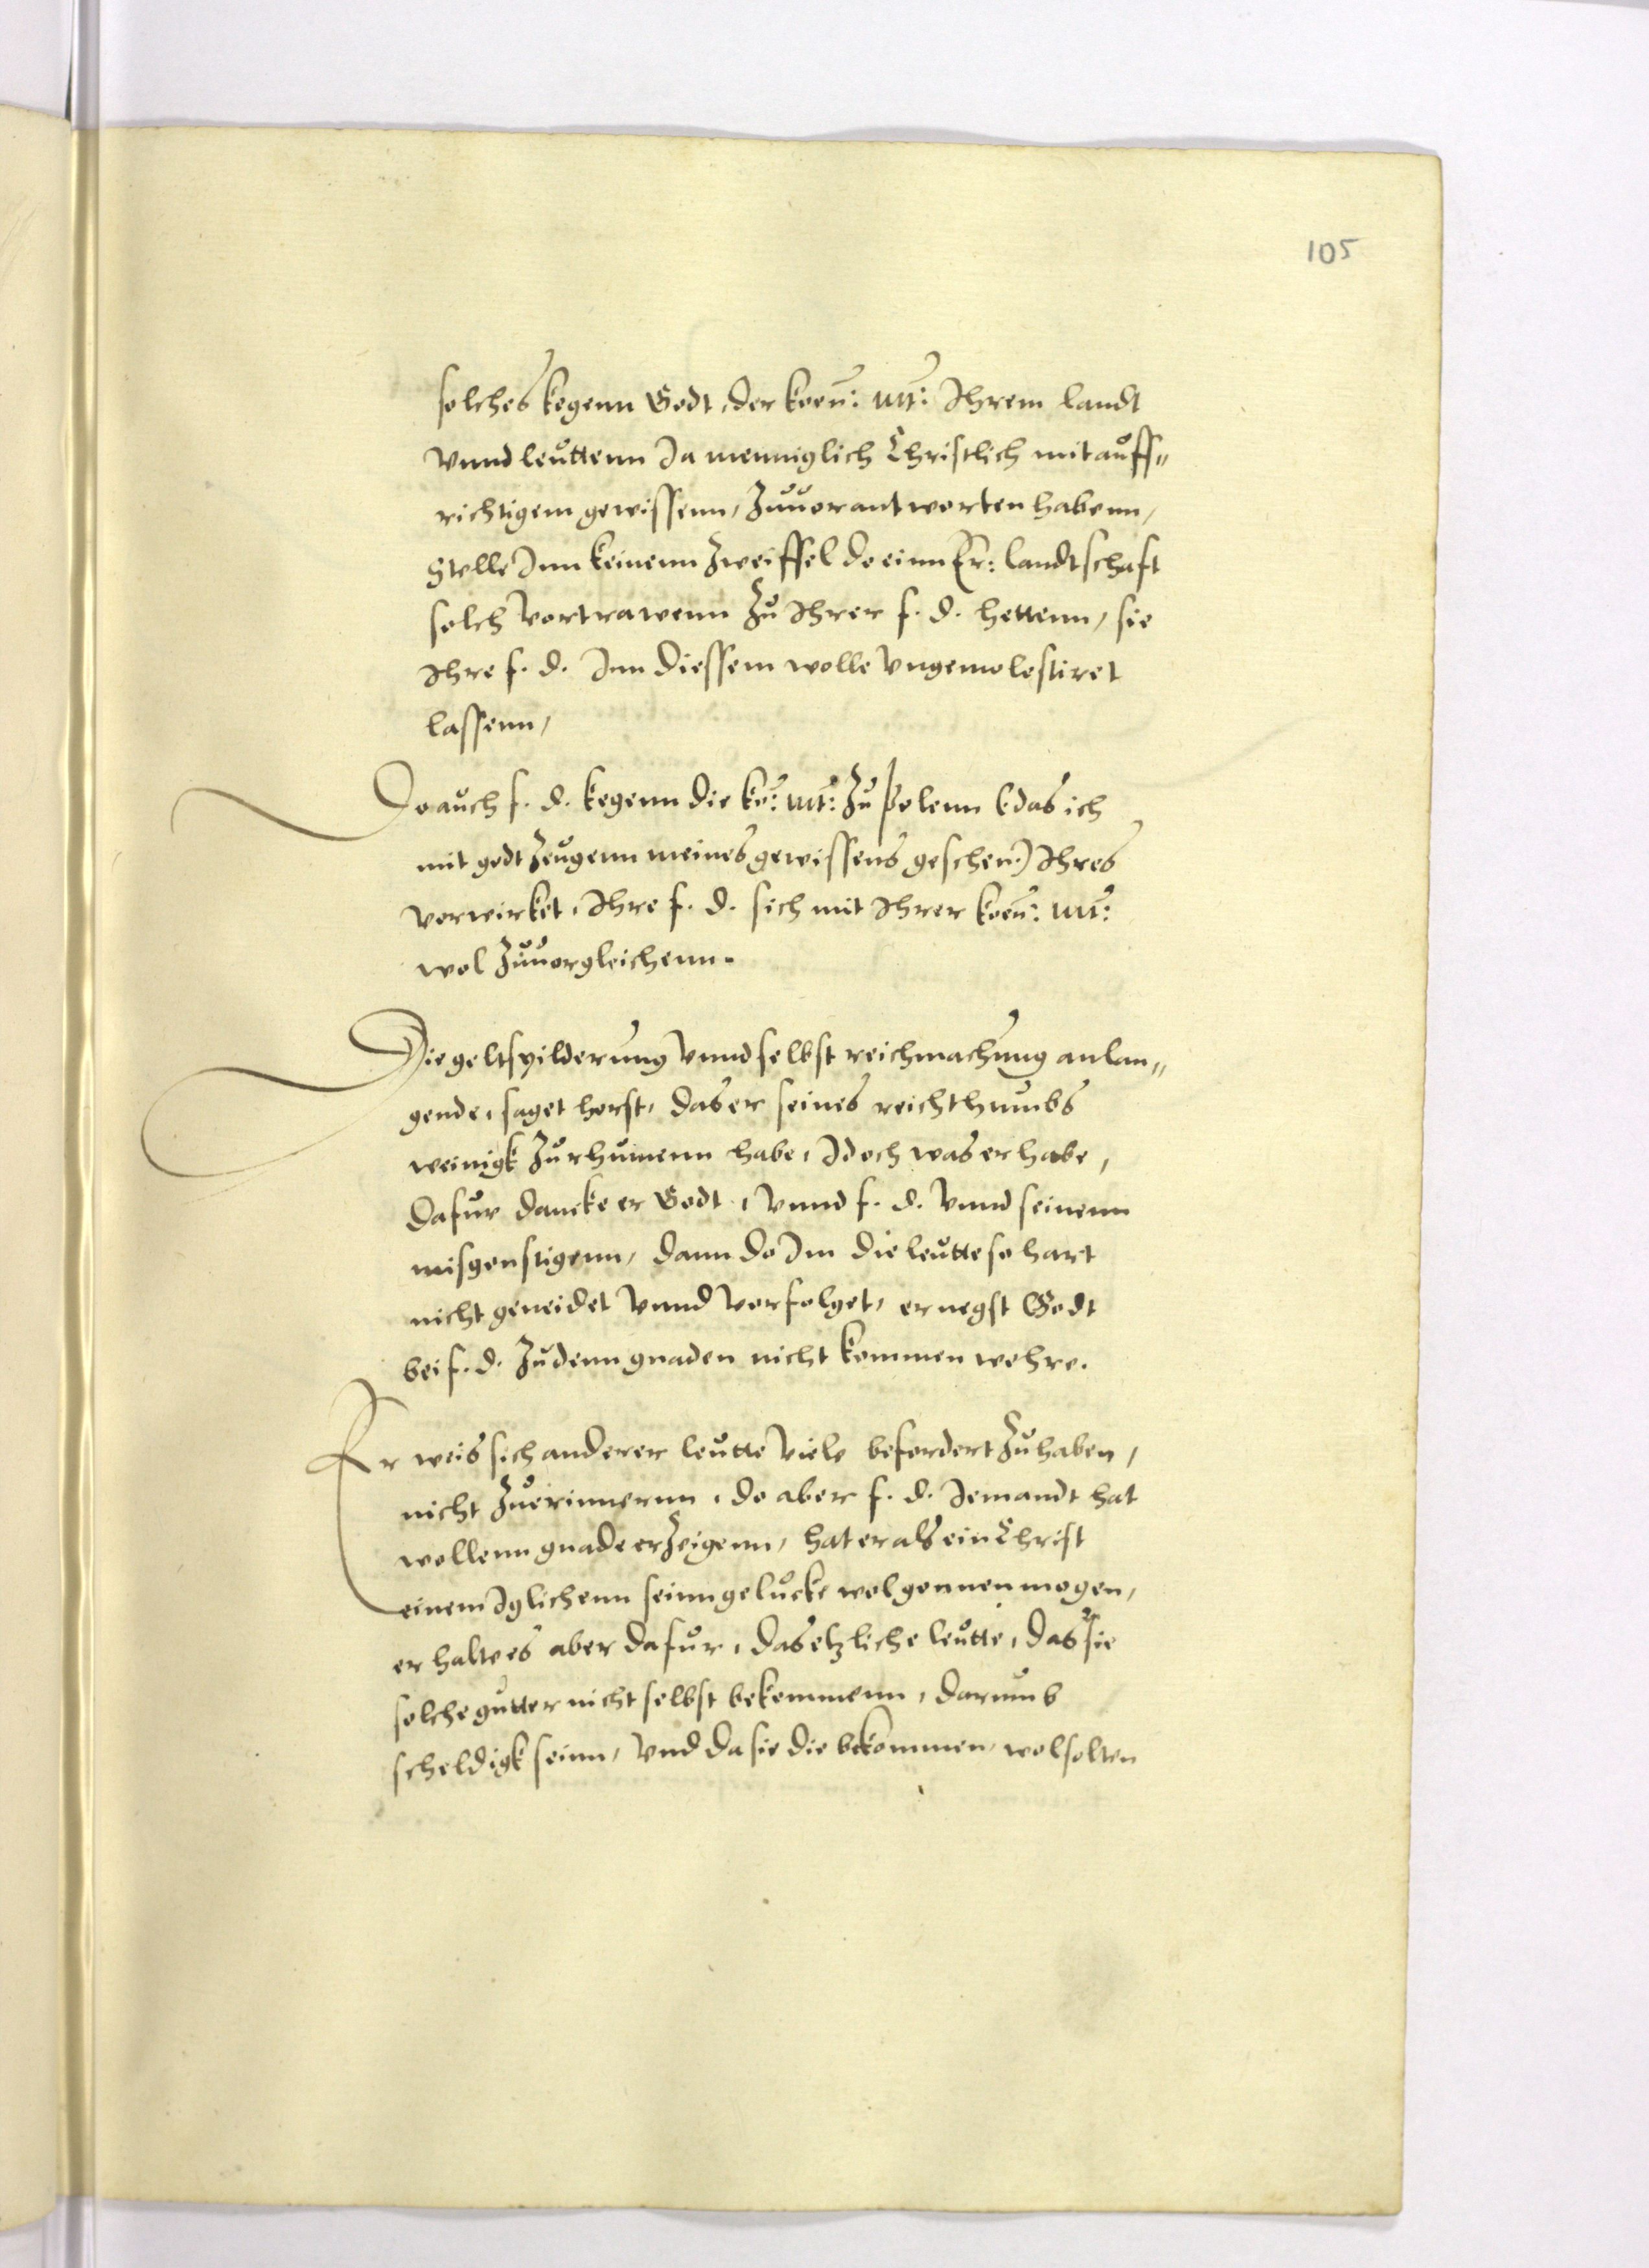 105
solches kegenn Godt, der koen: Mt: Ihrem landt
vnnd leuttenn Ja menniglich Christlich mit auff„
richtigem gewissenn, Zuuorantworten habenn,
Stelle Inn keinenn Zweiffel do einn Er: landtschaft
solch vortrawenn Zu Ihrer f. d. hettenn, sie
Ihre f. d. Inn diessem wolle vngemolestiret
lassenn,
Do auch f. d. kegenn die ko: Mt: Zu Polenn (das ich
mit godt Zeugenn meines gewissens geschen) Ihres
vorwirket, Ihre f. d. sich mit Ihrer koen: Mt:
wol Zuuorgleichenn.
Die geltspilderung vnnd selbst reichmachung anlan„
gende, saget horst, das er seines reichthumbs
weinigk Zurhumenn habe, Idoch was er habe,
dafur dancke er Godt, vnnd f. d. vnnd seinenn
misgonstigenn, dann do Im die leutte so hart
nicht geneidet vnnd vorfolget, er negst Godt
bei f. d. Zu denn gnaden nicht kommen wehre.
Er weis sich anderer leutte viele befordert Zu haben,
nicht Zuerinnernn, do aber f. d. Jemandt hat
wollenn gnade erZeigenn, hat er als ein Christ
einem Iglichenn seinn gelucke wol gonnen mogen,
er halte es aber dafur, das etzliche leutte, das sie
solche gutter nicht selbst bekommenn, darumb
scheldigk seinn, vnd da sie die bekommen, wol solten